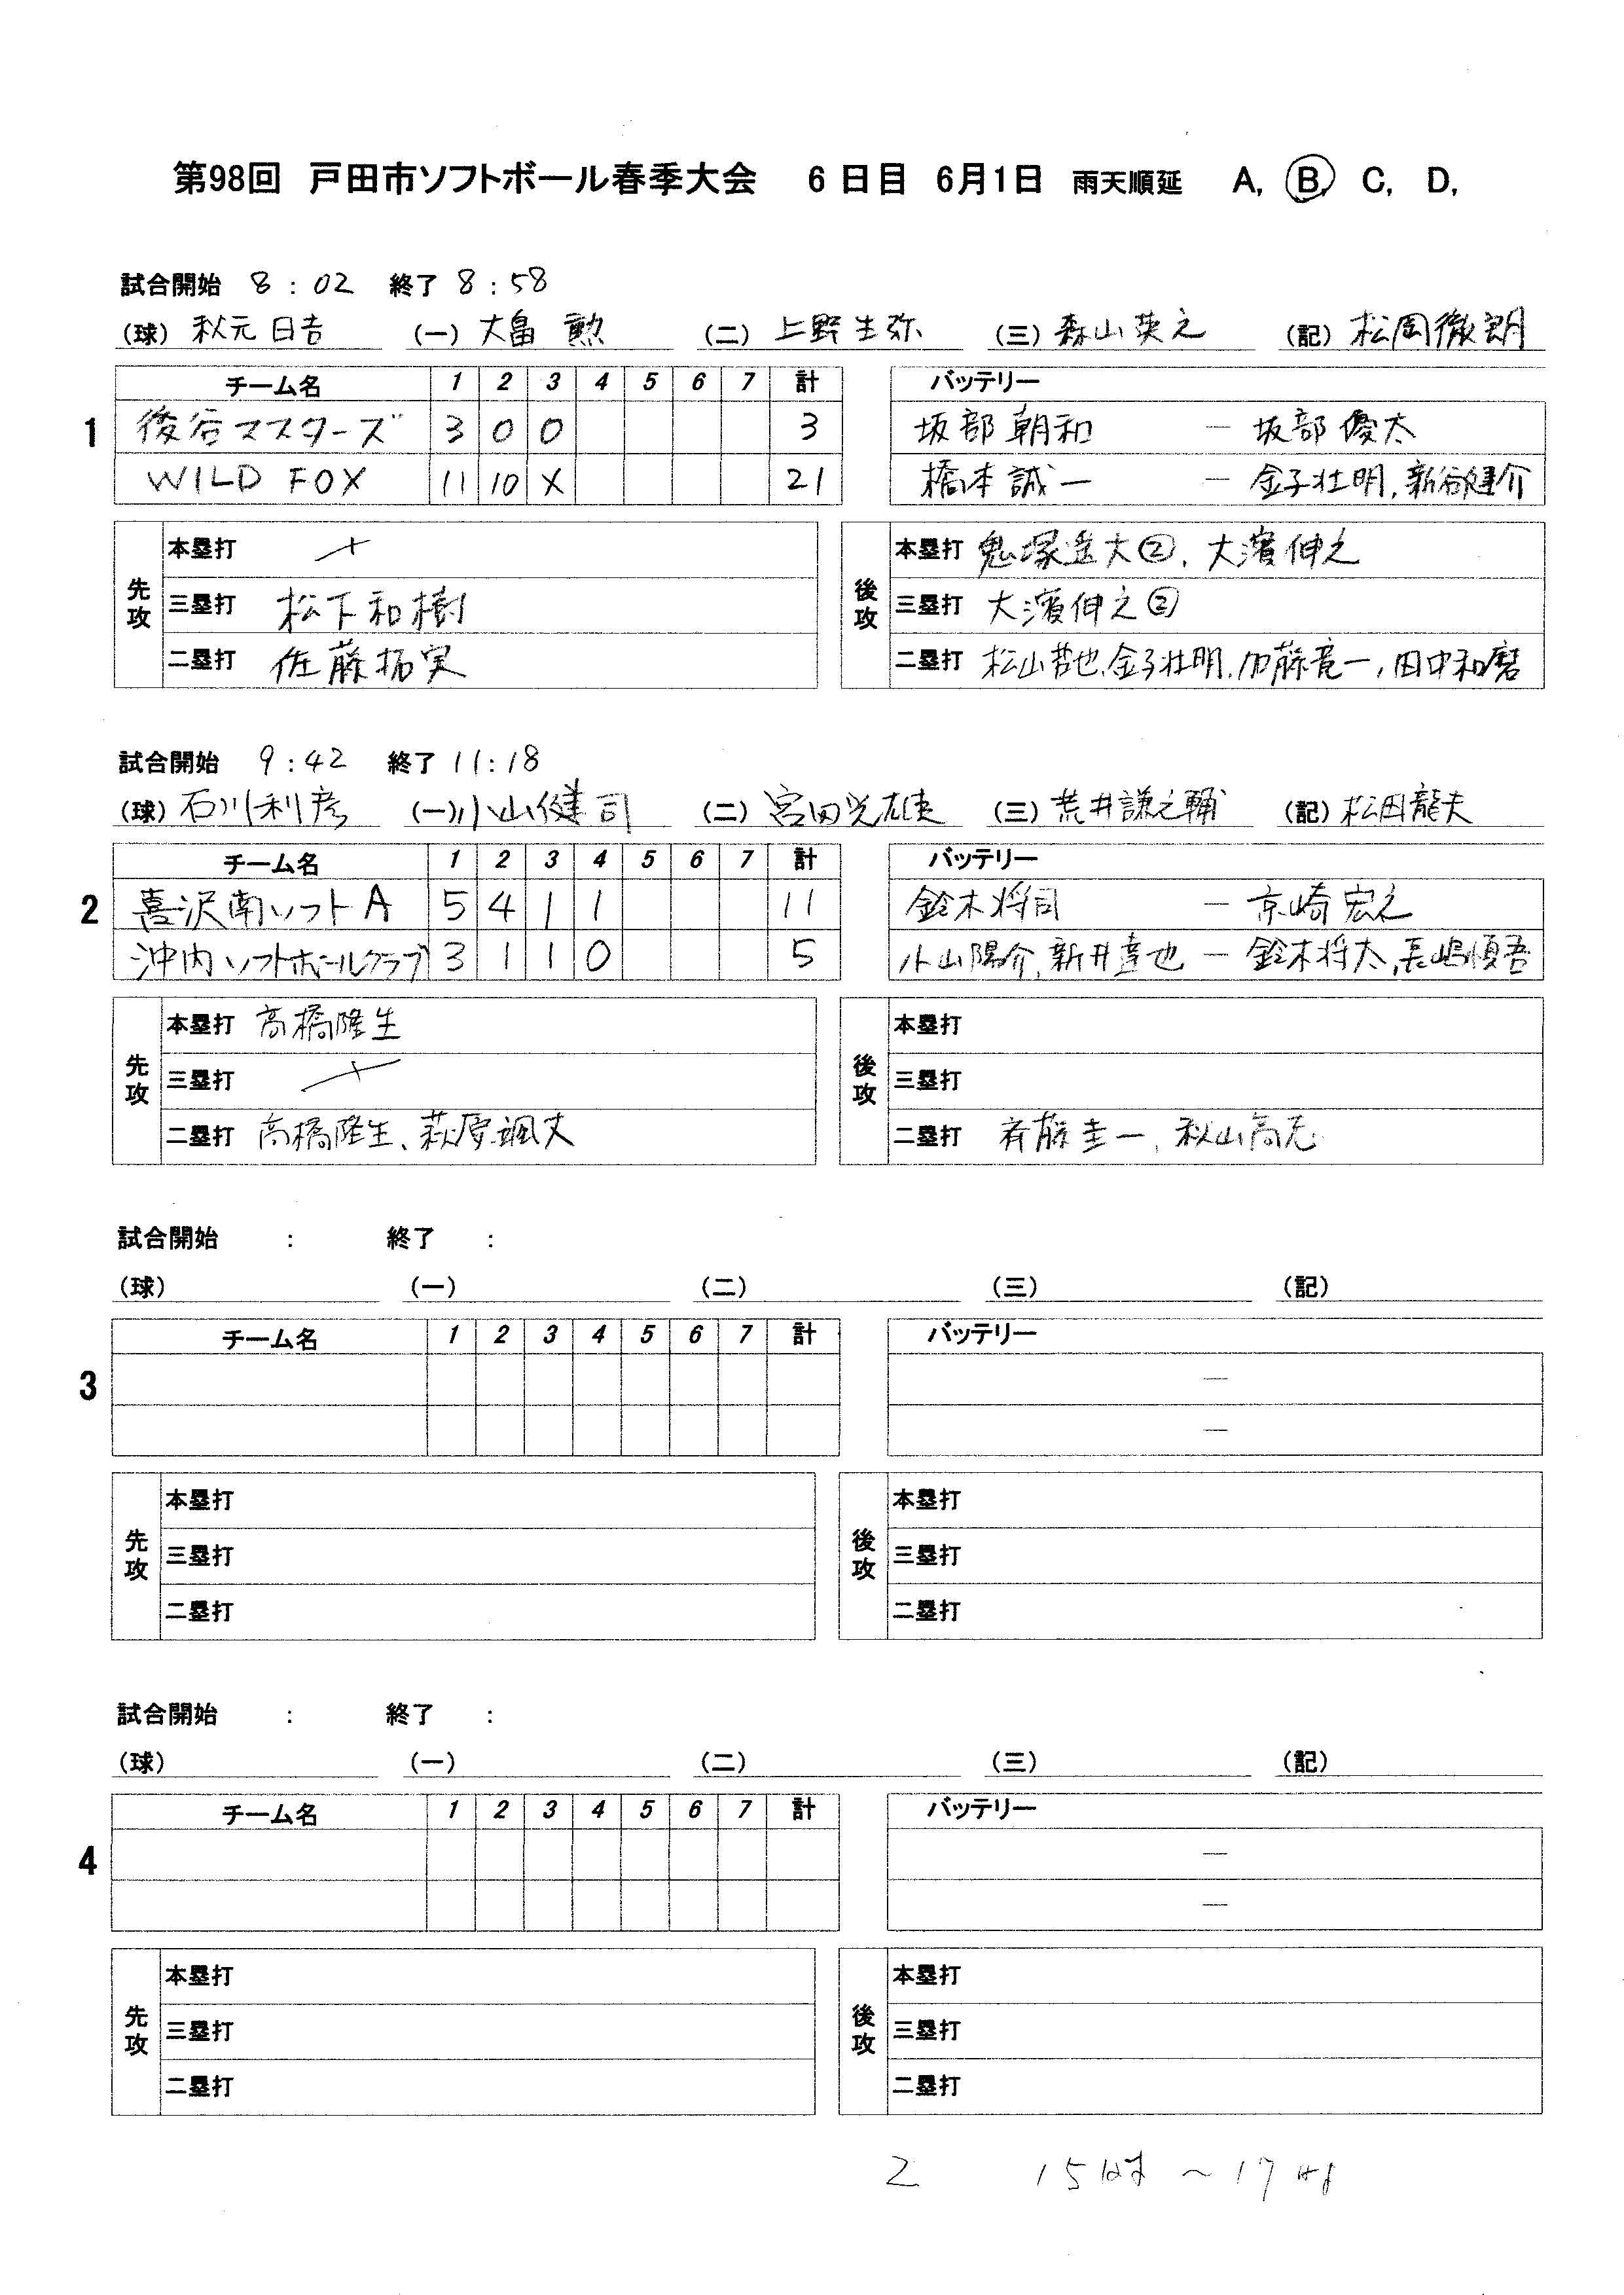 第98回 戸田市ソフトボール春季大会 6 日目 6月1日 雨天順延 A, B, C, D,
試合開始 8 : 02 終了 8 : 58
(球) 秋元 日吉 (一) 大畠 勲 (二) 上野 生弥 (三) 森山 英之 (記) 松岡徹朗
1
チーム名 1 2 3 4 5 6 7 計 バッテリー
後谷マスターズ 3 0 0 3 坂部 朝和 － 坂部 優太
WILD FOX 11 10 X 21 橋本 誠一 － 金子壮明, 新谷健介
先攻 本塁打
三塁打 松下和樹
二塁打 佐藤拓実
後攻 本塁打 鬼塚 大②, 大濱伸之
三塁打 大濱伸之②
二塁打 松山哲也, 金子壮明, 加藤竜一, 田中和磨
試合開始 9 : 42 終了 11 : 18
(球) 石川利彦 (一) 小山健司 (二) 宮田光雄 (三) 荒井謙之輔 (記) 松田龍夫
2
チーム名 1 2 3 4 5 6 7 計 バッテリー
喜沢南ソフトA 5 4 1 1 11 鈴木将司 － 京崎宏之
沖内ソフトボールクラブ 3 1 1 0 5 小山陽介, 新井達也 － 鈴木将太, 長嶋慎吾
先攻 本塁打 高橋隆生
三塁打
二塁打 高橋隆生、萩原颯丈
後攻 本塁打
三塁打
二塁打 斉藤圭一, 秋山高志
試合開始 : 終了 :
(球) (一) (二) (三) (記)
3
チーム名 1 2 3 4 5 6 7 計 バッテリー
－
－
先攻 本塁打
三塁打
二塁打
後攻 本塁打
三塁打
二塁打
試合開始 : 終了 :
(球) (一) (二) (三) (記)
4
チーム名 1 2 3 4 5 6 7 計 バッテリー
－
－
先攻 本塁打
三塁打
二塁打
後攻 本塁打
三塁打
二塁打
2 15時 ～ 17時